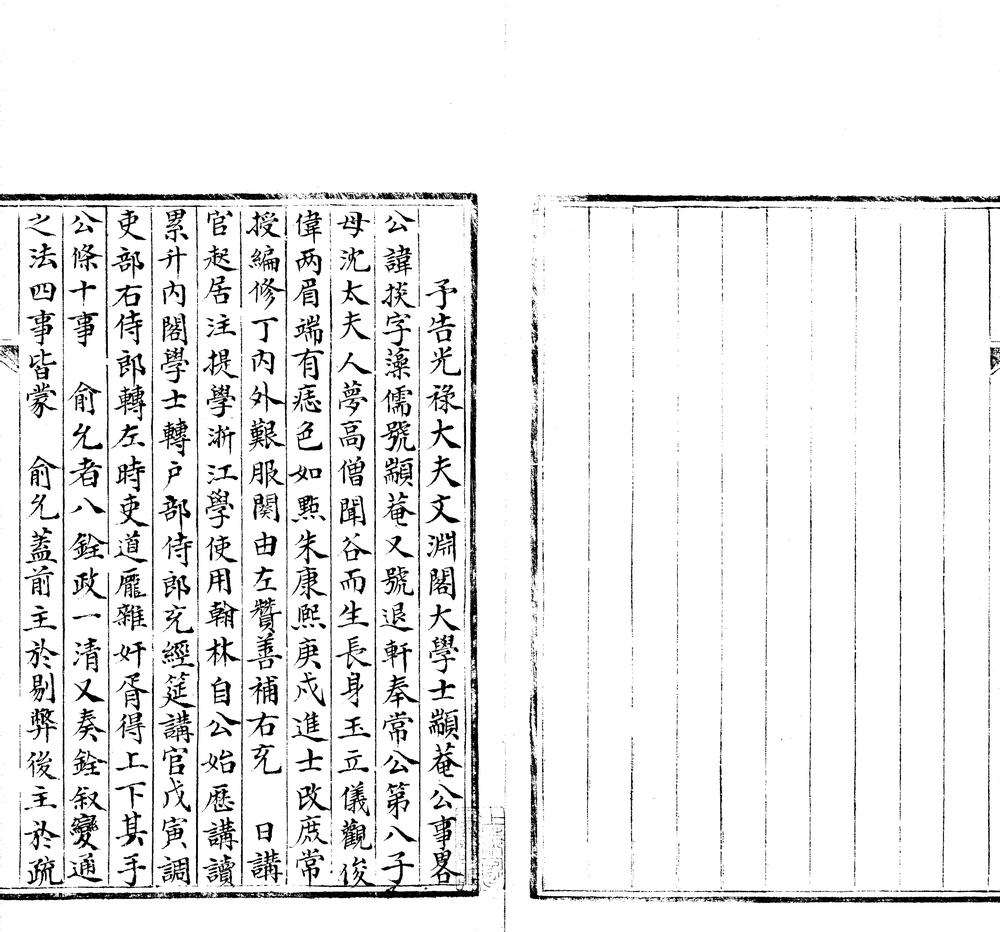 予告光祿大夫文淵閣大學士顓菴公事畧
公諱掞字藻儒號顓菴又號退軒奉常公第八子
母沈太夫人夢高僧聞谷而生長身玉立儀觀俊
偉两眉端有痣色如㸃朱康熙庚戍進士改庶常
授編修丁内外艱服闋由左贊善補右充 日講
官起居注提學浙江學使用翰林自公始歷講讀
累升内閣學士轉户部侍郎充經筵講官戊寅調
吏部右侍郎轉左時吏道龎雜奸胥得上下其手
公條十事 俞允者八銓政一清又奏銓叙變通
之法四事皆蒙 俞允蓋前主於剔弊後主於疏